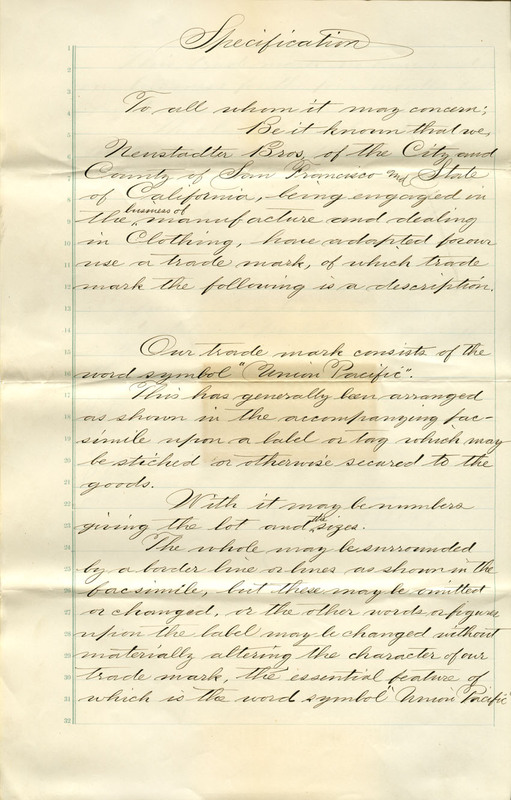 Specification
1
2
3
4 To all whom it may concern;
5 Be it known that we,
6 Neustadter Bros, of the City and
7 County of San Francisco and State
8 of California, being engaged in
9 the business of manufacture and dealing
10 in Clothing, have adopted for our
11 use a trade mark, of which trade
12 mark the following is a description.
13
14
15 Our trade mark consists of the
16 word symbol "Union Pacific".
17 This has generally been arranged
18 as shown in the accompanying fac-
19 simile upon a label or tag which may
20 be stiched or otherwise secured to the
21 goods.
22 With it may be numbers
23 giving the lot and the sizes.
24 The whole may be surrounded
25 by a border line or lines as shown in the
26 facsimile, but these may be omitted
27 or changed, or the other words or figures
28 upon the label may be changed without
29 materially altering the character of our
30 trade mark, the essential feature of
31 which is the word symbol "Union Pacific"
32